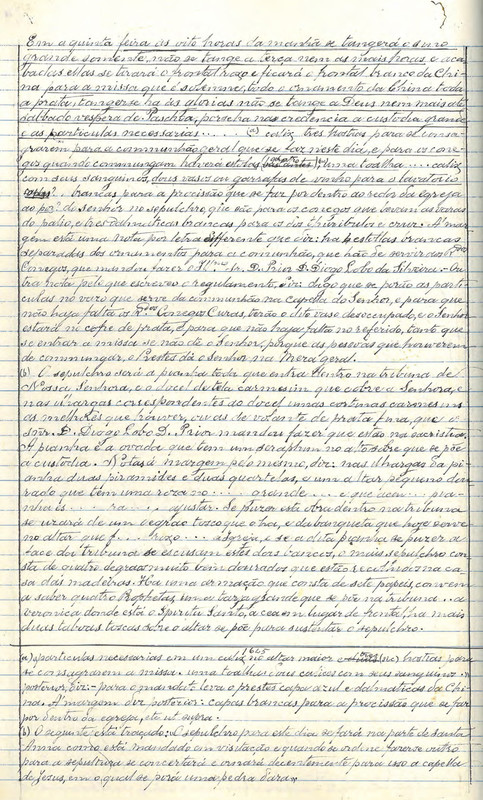 Em a quinta feira ás oito horas da manhã se tangerá o sino
grande somente, não se tange a terça nem as mais horas e aca
badas ellas se tirará o frontal roxo e ficará o frontal branco da Chi-
na para a missa que é solemne, todo o ornamento da China toda
a prata, tanger se ha ás glorias não se tange a Deus nem mais até
sabbado vespera de Paschoa, porse ha na credencia a custodia grande
e as particulas necessarias .... (a) calix tres hostias para se consa-
grarem para a communhão geral que se faz neste dia, e para os cone-
gos quando commungam haverá estolas (sic) uma toalha .... calix
com seus sanguinos, dous vasos ou garrafas de vinho para o lavatorio
brancas para a procissão que se faz por dentro ao redor da egreja
ao pôr do Senhor no sepulchro, que são para os conegos que levam as varas
do palio, e tres dalmaticas brancas para os dos thuribulos e cruz. Á mar-
gem está uma nota por letra differente que diz: ha 6 estollas brancas
separadas dos ornamentos para a communhão, que hão de servir aos Rdos
Conegos, que mandou fazer o Illmo Sr. D. Prior D. Diogo Lobo da Silveira. Ou
tra nota pelo que escreveu o regulamento, diz: digo que se porão as parti-
culas no vaso que serve da communhão na capella do Senhor, e para que
não haja falta os Rdos Conegos Curas terão o dito vaso desoccupado, e o Senhor
estará no cofre de prata, e para que não haja falta no referido, tanto que
se entrar a missa se não dá o Senhor, porque as pessoas que houverem
de commungar, o Prestes dá o Senhor na Meza geral.
(b) O sepulchro será a pianha toda que entra dentro na tribuna de
Nossa Senhora, e o docel de tela carmesim que cobre a Senhora, e
nas ilhargas correspondentes ao docel umas cortinas carmesins
as melhores que houver, ou as de volante de prata fina, que o
Snr. D. Diogo Lobo D. Prior mandou fazer que estão na sacristia.
A pianha é a ovada que tem um seraphim no alto sobre que se põe
a custodia. Notas á margem pelo mesmo, diz: nas ilhargas da pi-
anha duas piramides e duas quartelas, e um altar pequeno dou-
rado que tem uma rosa no .... grande .... e que dem .... pia-
nha is .... ra .... ajustar. Se puzer esta obra dentro na tribuna
se uzará de um degrao tosco que o ha, e da banqueta que hoje serve
no altar que f.... baço .... egreja, e se a dita pianha se puzer a
face da tribuna se escusam estes dois bancos, o mais sepulchro con-
sta de quatro degraos muito bem dourados que estão recolhidos na ca-
sa das madeiras. Ha uma armação que consta de sete papeis, convem
a saber quatro Prophetas, uma tarja grande que se põe na tribuna .. a
veronica donde está o Spiritu Santo, a cea em lugar de frontal, ha mais
duas taboas toscas sobre o altar se põe para sustentar o sepulchro.
1645
(a) aparticulas necessarias em um calix, no altar maior (sic) hostias para
se consagrarem a missa. uma toalha e dois calices com seus sanguinos. N.
posterior, diz: para o mandato leva o prestes capa azul e dalmaticas da Chi-
na. Á margem diz posterior: capas brancas para a procissão que se faz
por dentro da egreja, etc ut supra.
(b) O seguinte está traçado: O sepulchro para este dia se fará na parte de Santa
Anna como está mandado em visitação e quando se ordene fazer se outro
para a sepultura se concertará e ornará decentemente para isso a capella
de Jesus, em o qual se porá uma pedra d'ara